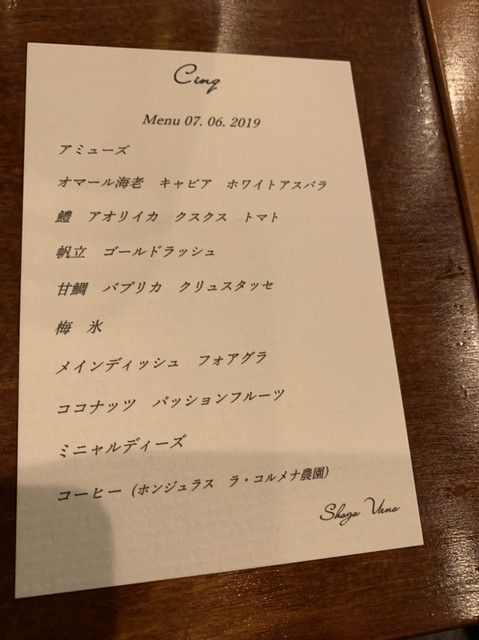 Cinq
Menu 07. 06. 2019
アミューズ
オマール海老　キャビア　ホワイトアスパラ
鱧　アオリイカ　クスクス　トマト
帆立　ゴールドラッシュ
甘鯛　パプリカ　クリュスタッセ
梅　氷
メインディッシュ　フォアグラ
ココナッツ　パッションフルーツ
ミニャルディーズ
コーヒー（ホンジュラス　ラ・コルメナ農園）
Shogo Ueno